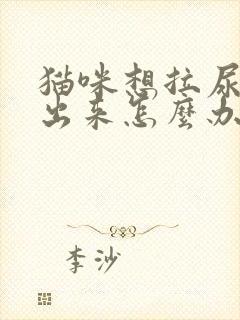 猫咪想拉尿
出来怎麼办
李沙